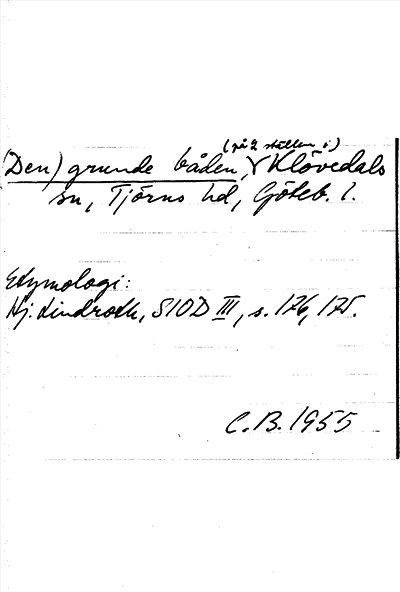 (på 2 ställen i)
(Den) grunde båden, Klövedals
sn, Tjörns hd, Göteb. l.
Etymologi:
Hj. Lindroth, SIOD III, s. 176, 175.
C.B. 1955